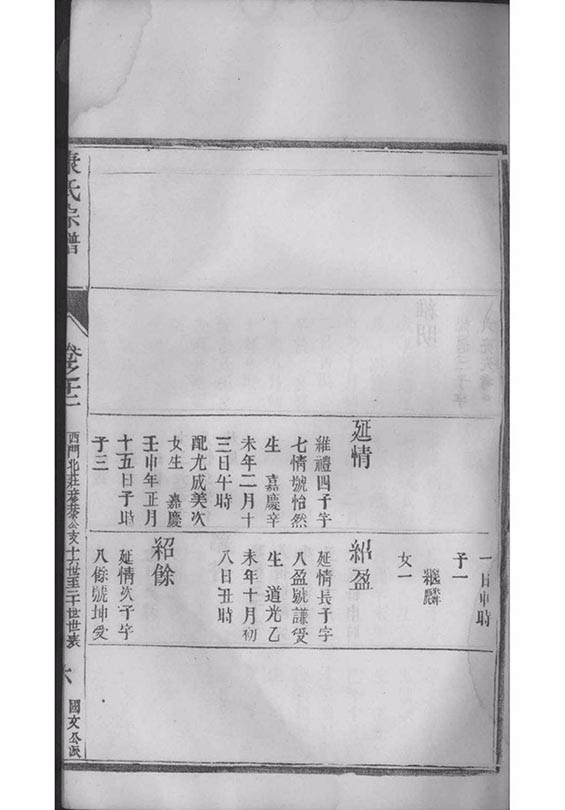 延情
維禮四子字
七情號怡然
生 嘉慶辛
未年二月十
三日午時
配尤成美次
女生 嘉慶
壬申年正月
十五日子時
子三
一日申時
子一
繼麟
女一
紹盈
延情長子字
八盈號謙受
生 道光乙
未年十月初
八日丑時
紹餘
延情次子字
八餘號坤受
康氏宗譜
卷之
西門北莊彥恭公支十六世至二十世世表
六
國文公派